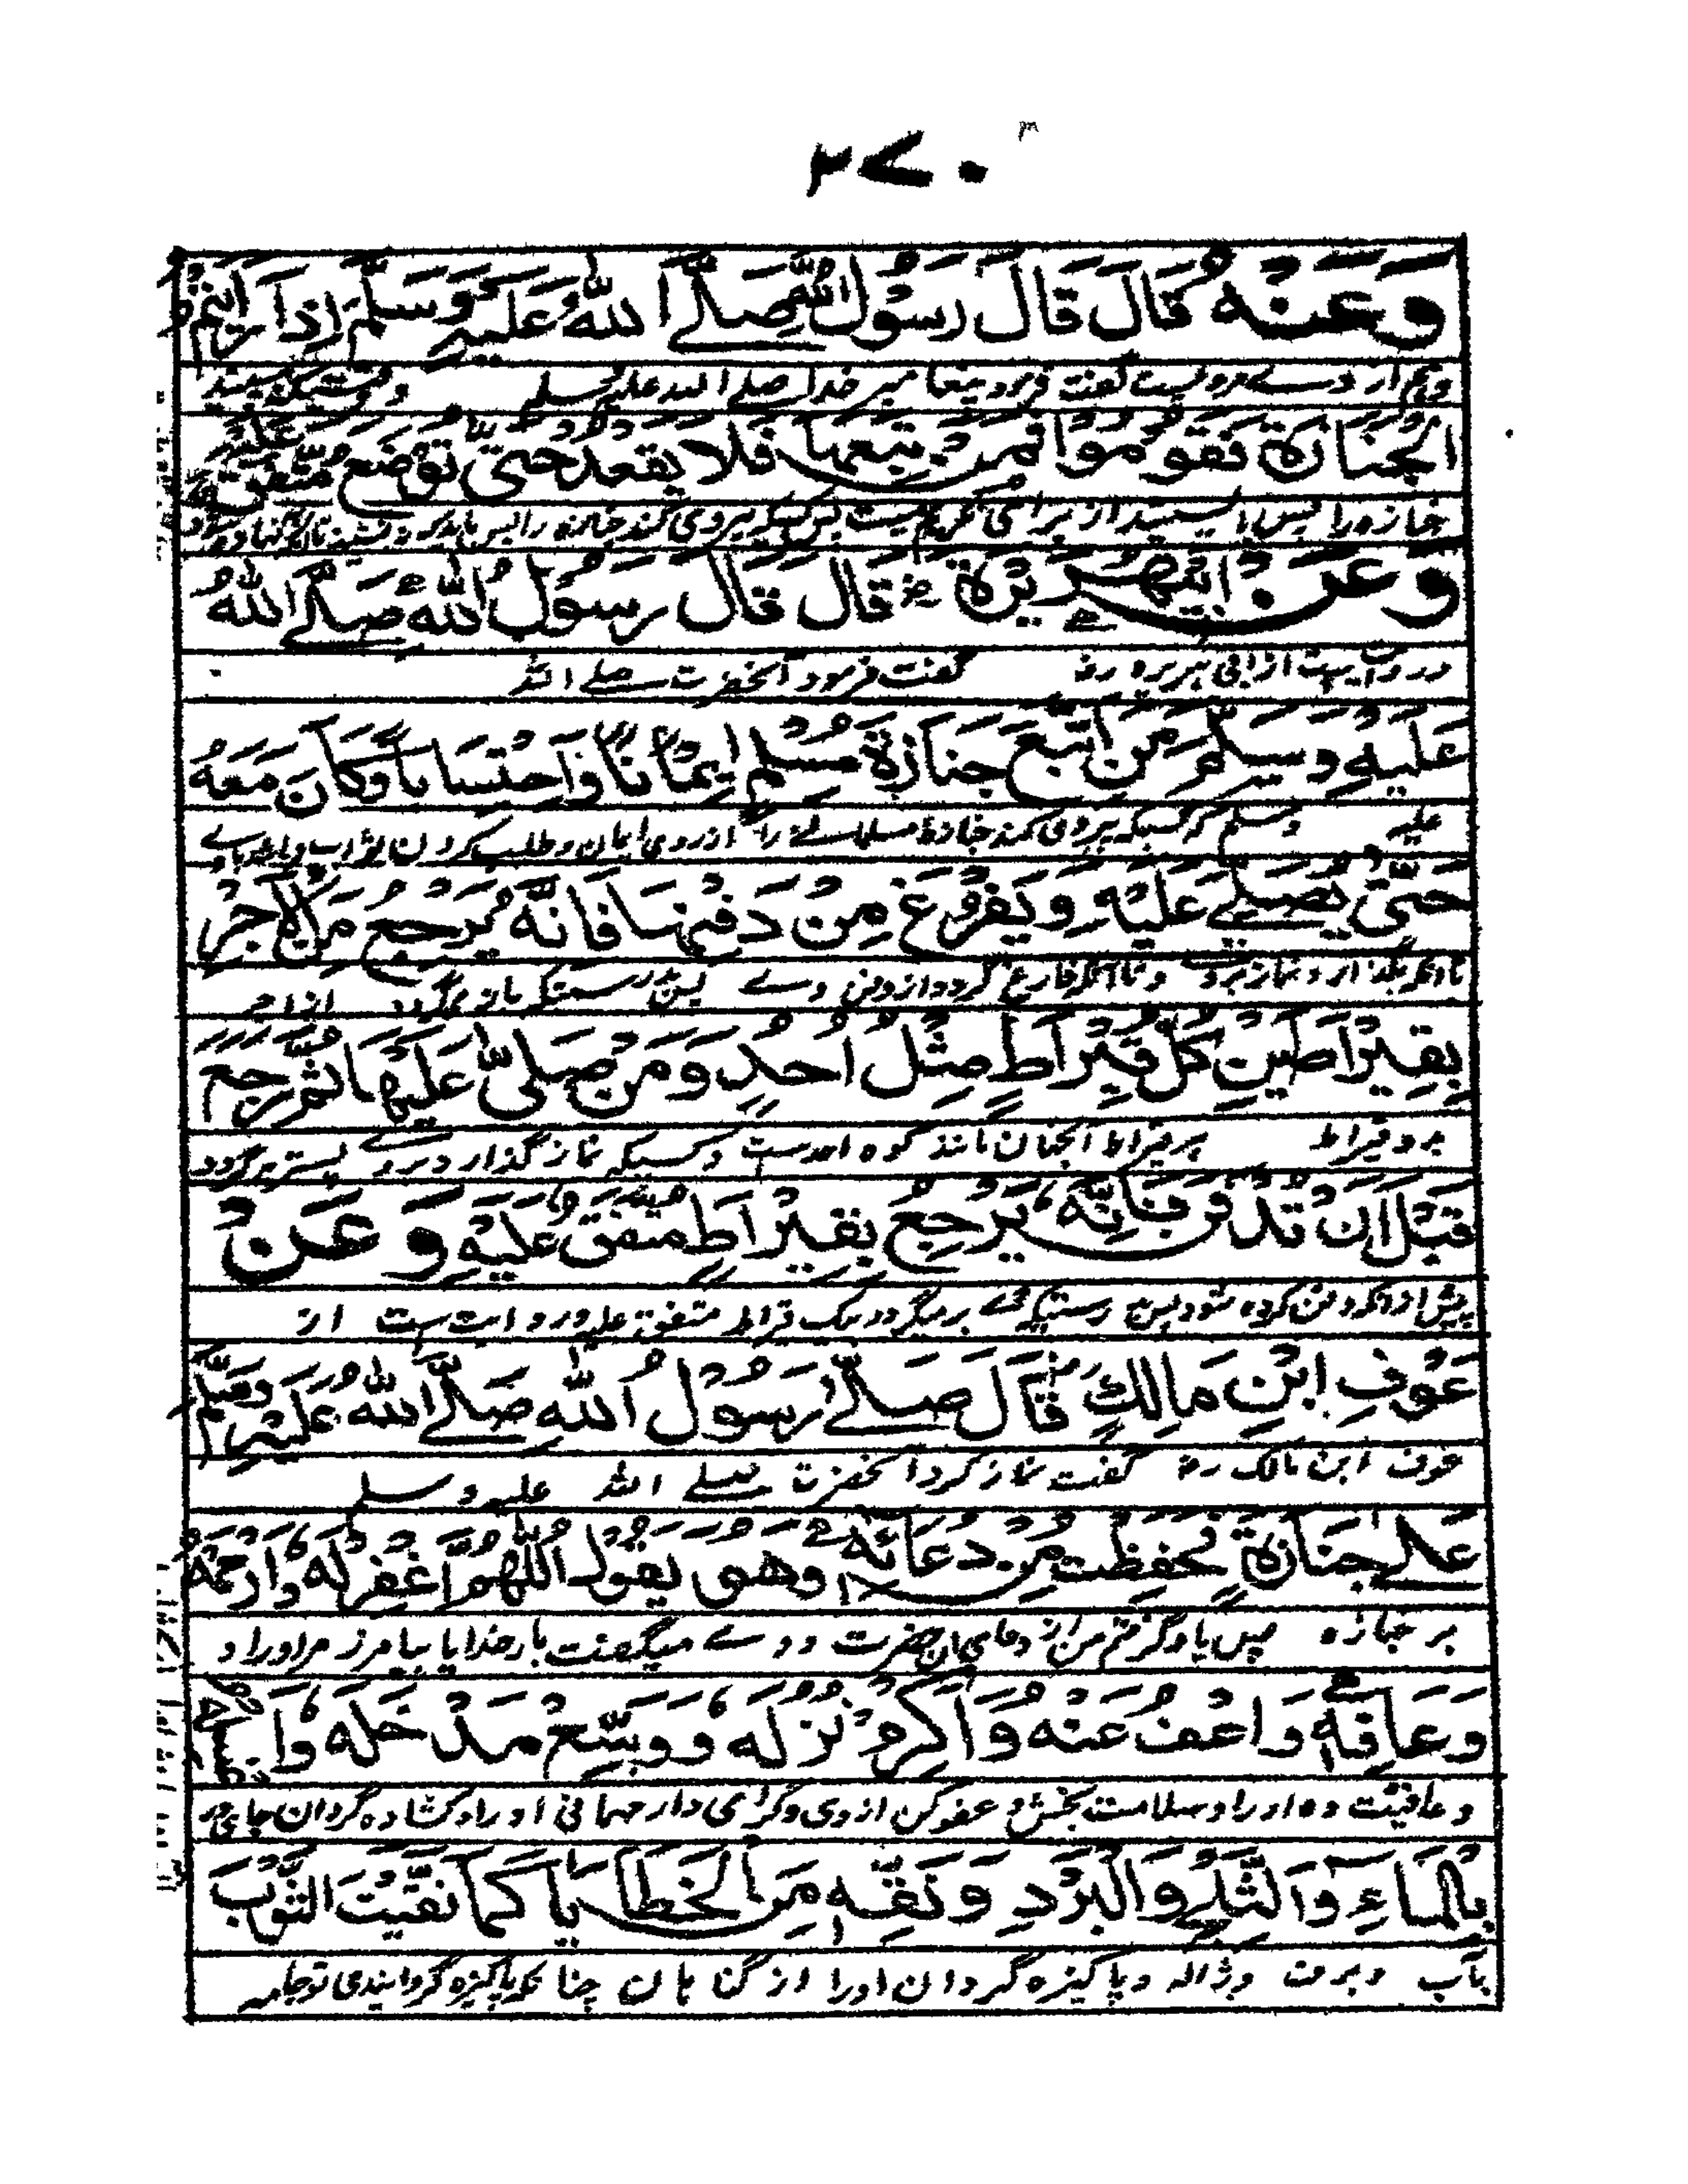 ٢٧٠
وَعَنْهُ قَالَ قَالَ رَسُوْلُ اللهِ صَلَّے اللهُ عَلَيْهِ وَسَلَّمَ اِذَا رَاَيْتُمْ
وهم از وے مرویست گفت فرمود پیغامبر خدا صلے الله علیه وسلم وقتیکه بینید
الْجَنَازَةَ فَقُوْمُوْا فَمَنْ تَبِعَهَا فَلَا يَقْعُدْ حَتّٰى تُوْضَعَ مُتَّفَقٌ عَلَيْهِ
جنازه را پس بایستید از برای تکریم میت پس کسیکه پیروی کند جنازه را پس باید که ننشیند تا
وَعَنْ اَبِيْ هُرَيْرَةَ رض قَالَ قَالَ رَسُوْلُ اللهِ صَلَّے اللهُ
و روایت ست از ابی هریره رض گفت فرمود آنحضرت صلے الله
عَلَيْهِ وَسَلَّمَ مَنِ اتَّبَعَ جَنَازَةَ مُسْلِمٍ اِيْمَانًا وَّاحْتِسَابًا وَّكَانَ مَعَهُ
علیه وسلم که کسیکه پیروی کند جنازۀ مسلمانے را از روی ایمان و طلب کردن ثواب و باشد باوے
حَتّٰى يُصَلّٰے عَلَيْهِ وَيَفْرُغَ مِنْ دَفْنِهَا فَاِنَّهُ يَرْجِعُ مِنَ الْاَجْرِ
تا آنکه بگذارد نماز برو و تا آنکه فارغ گردد از دفن وے پس بدرستیکه باز میگردد از اجر
بِقِيْرَاطَيْنِ كُلُّ قِيْرَاطٍ مِثْلُ اُحُدٍ وَمَنْ صَلّٰى عَلَيْهَا ثُمَّ رَجَعَ
بدو قیراط هر قیراط آنچنان مانند کوه احدست و کسیکه نماز گذارد برو پستر برگردد
قَبْلَ اَنْ تُدْفَنَ فَاِنَّهُ يَرْجِعُ بِقِيْرَاطٍ مُتَّفَقٌ عَلَيْهِ وَعَنْ
پیش از آنکه دفن کرده شود پس بدرستیکه وے برمیگردد بیک قیراط متفق علیه و روایت ست از
عَوْفِ ابْنِ مَالِكٍ رض قَالَ صَلّٰے رَسُوْلُ اللهِ صَلَّے اللهُ عَلَيْهِ وَسَلَّمَ
عوف ابن مالک رض گفت نماز کرد آنحضرت صلے الله علیه وسلم
عَلٰے جَنَازَةٍ فَحَفِظْتُ مِنْ دُعَائِهٖ وَهُوَ يَقُوْلُ اللّٰهُمَّ اغْفِرْ لَهُ وَارْحَمْهُ
بر جنازه پس یاد گرفتم من از دعای آن حضرت و وے میگفت بار خدایا بیامرز مر او را و
وَعَافِهٖ وَاعْفُ عَنْهُ وَاَكْرِمْ نُزُلَهُ وَوَسِّعْ مَدْخَلَهُ
و عافیت ده او را و سلامت بخش و عفو کن از وی و گرامی دار مهمانی او را و کشاده گردان جای
بِالْمَاءِ وَالثَّلْجِ وَالْبَرَدِ وَنَقِّهٖ مِنَ الْخَطَايَا كَمَا نَقَّيْتَ الثَّوْبَ
بآب و برف و ژاله و پاکیزه گردان او را از گناهان چنانکه پاکیزه گردانیدی تو جامه